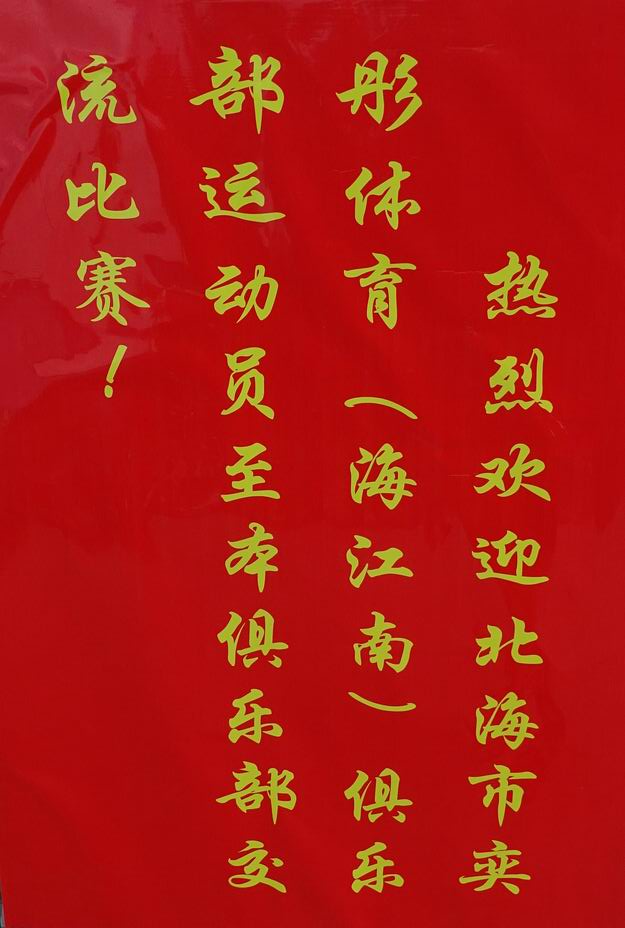 热烈欢迎北海市奕
彤体育（海江南）俱乐
部运动员至本俱乐部交
流比赛！